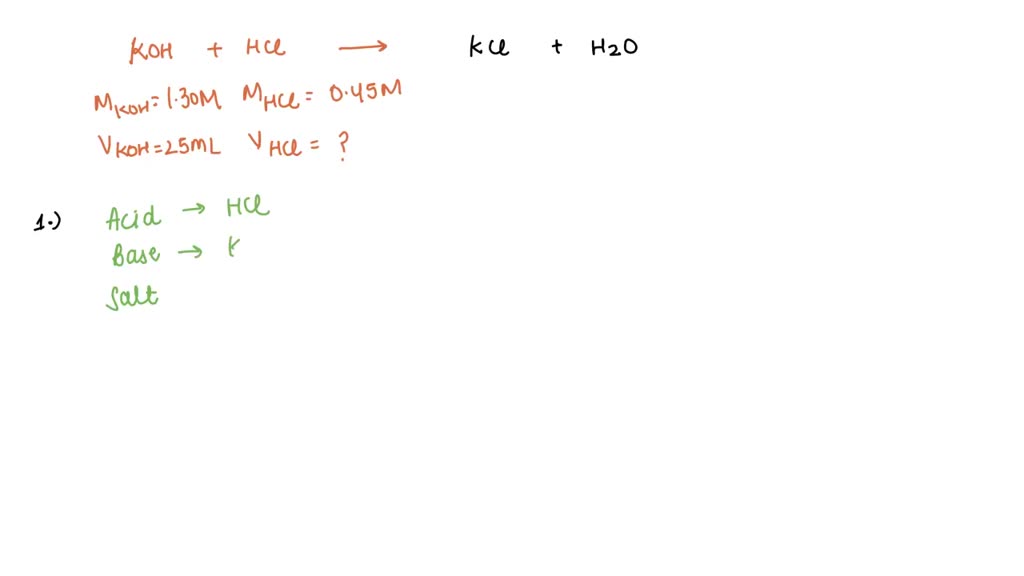 KOH + HCl → KCl + H2O
MKOH = 1.30M MHCl = 0.45M
VKOH = 25mL VHCl = ?
1.) Acid → HCl
Base → K
Salt